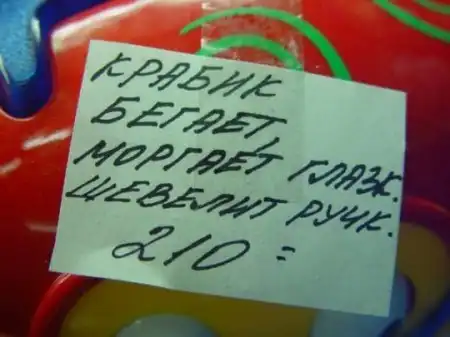 КРАБИК
БЕГАЕТ,
МОРГАЕТ ГЛАЗК.
ШЕВЕЛИТ РУЧК.
210=